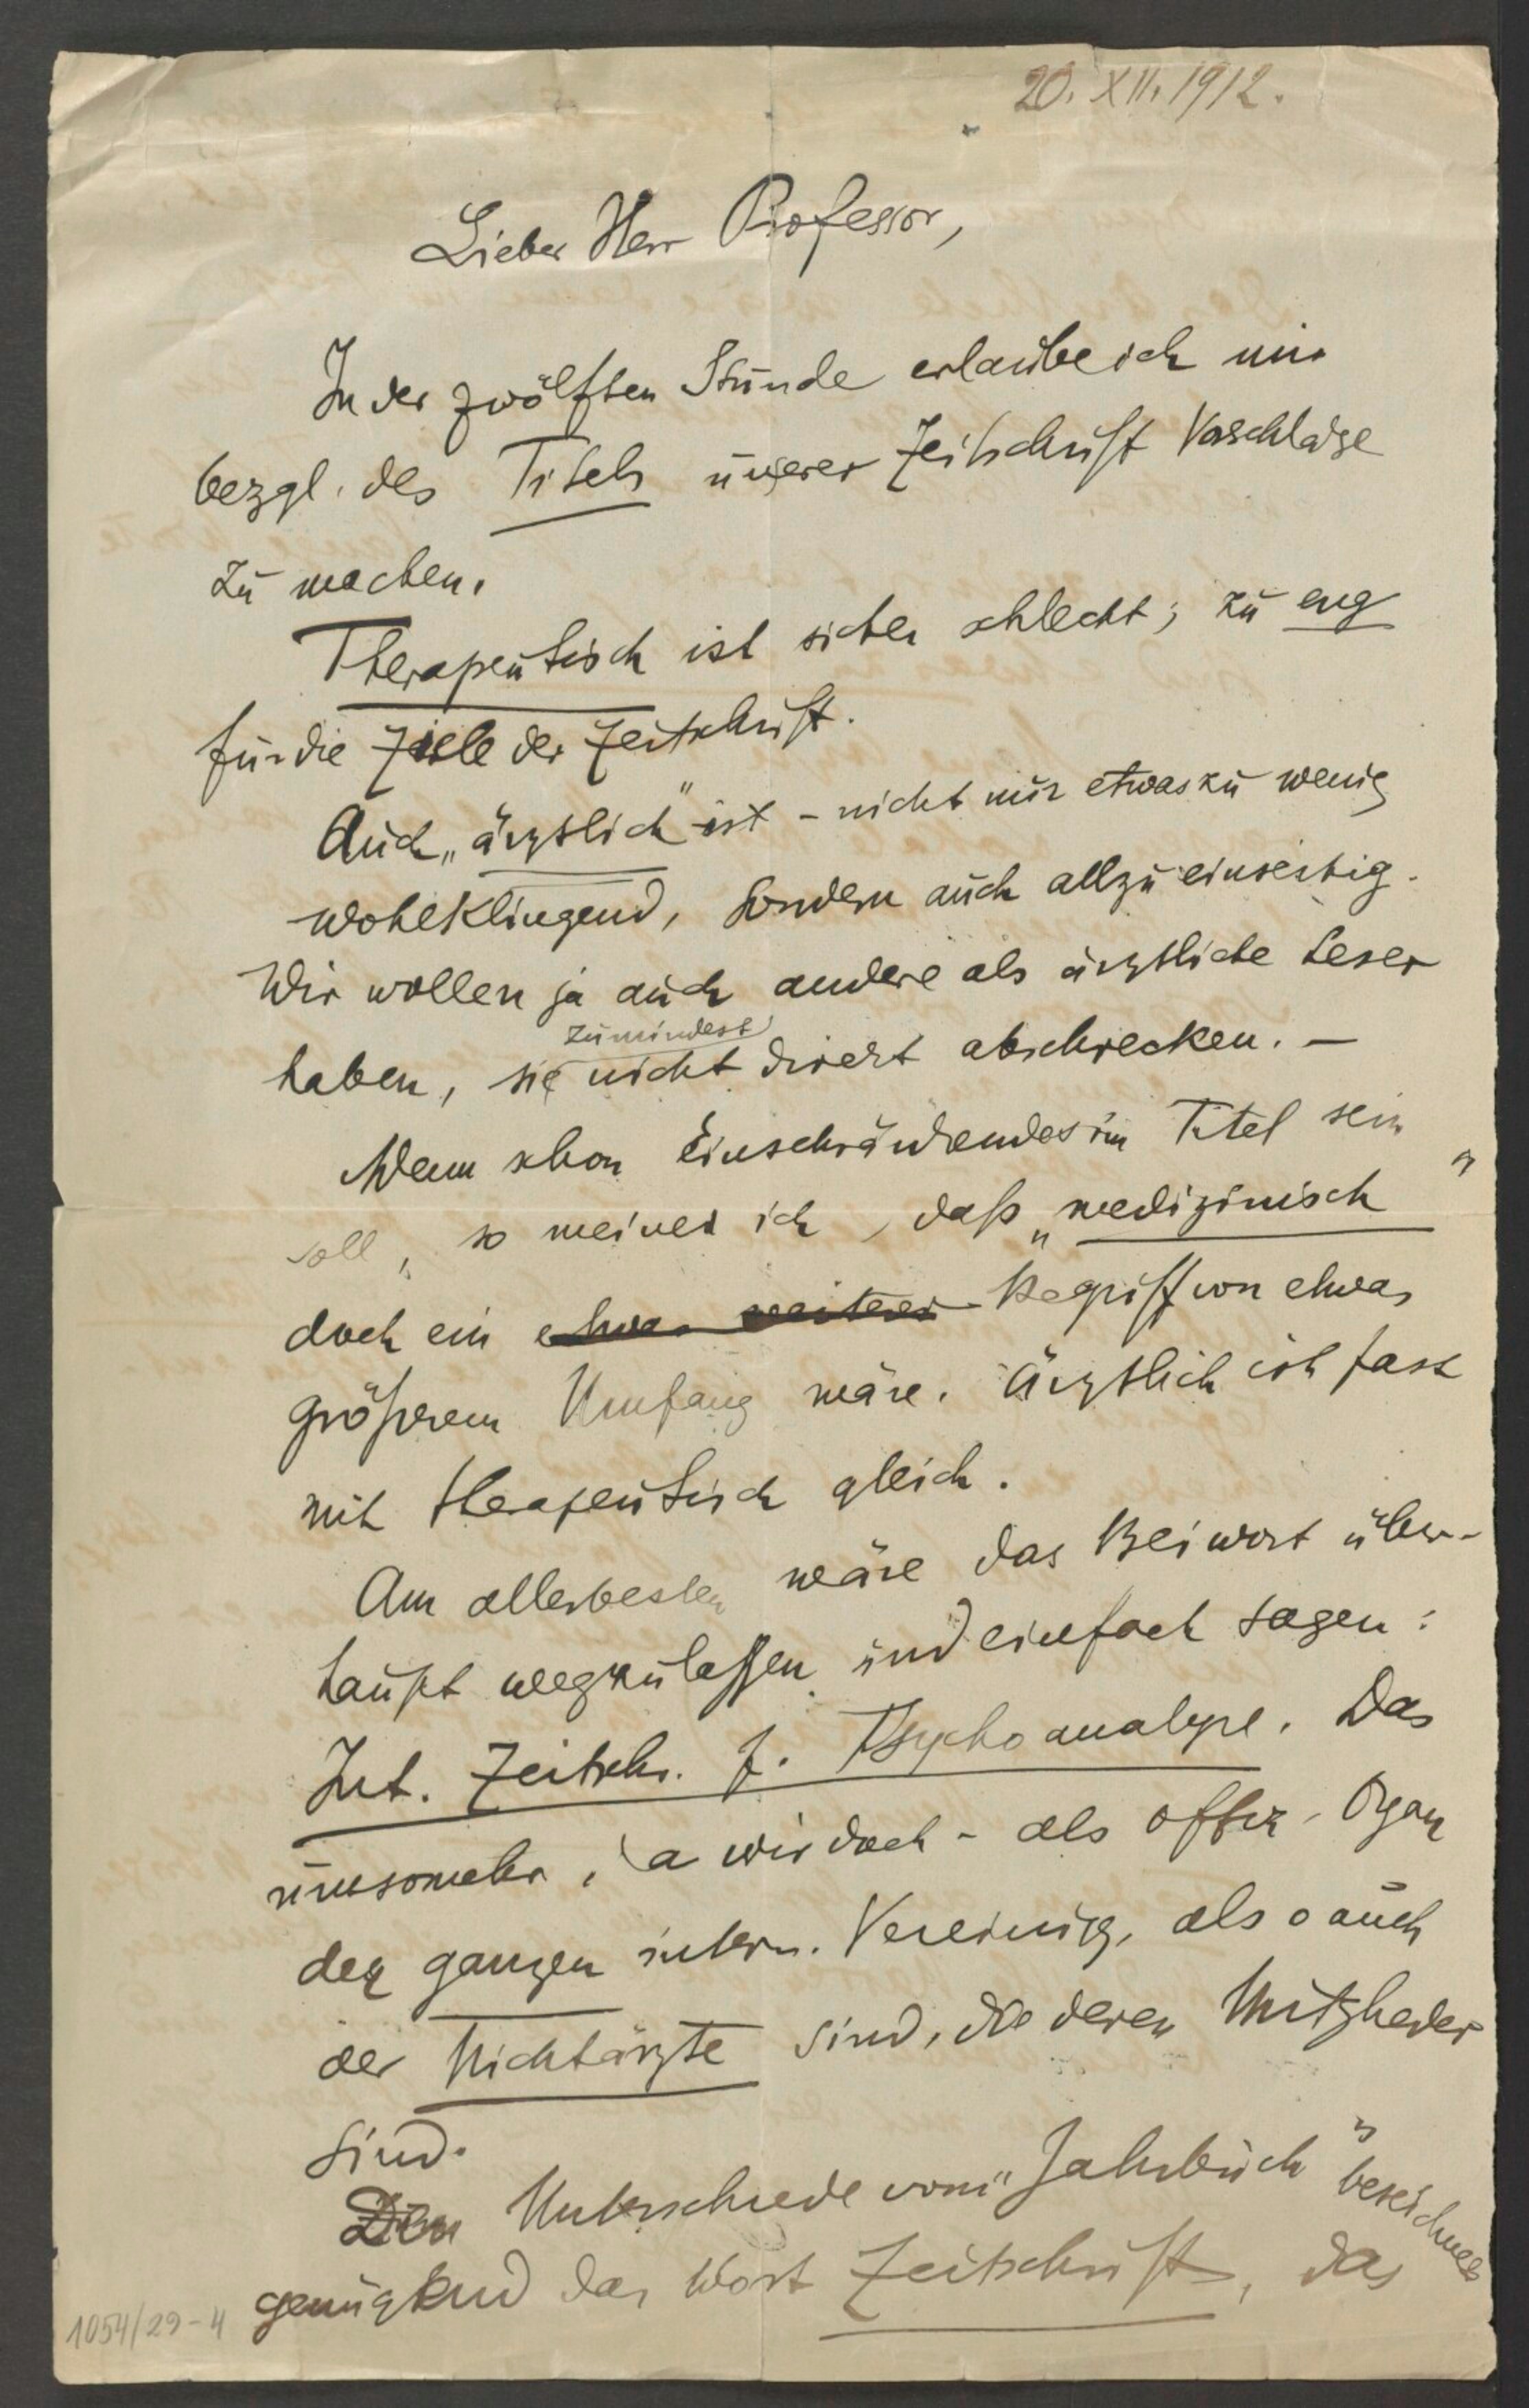 20. XII. 1912.
Lieber Herr Professor,
In der zwölften Stunde erlaube ich mir
bezgl. des Titels unserer Zeitschrift Vorschläge
zu machen.
Therapeutisch ist sicher schlecht; zu eng
für die Ziele der Zeitschrift.
Auch „ärztlich“ ist - nicht nur etwas zu wenig
wohlklingend, sondern auch allzu einseitig.
Wir wollen ja auch andere als ärztliche Leser
zumindest
haben, sie nicht direkt abschrecken. —
Wenn schon Einschränkendes im Titel sein
soll, so meine ich, daß „medizinisch“
doch ein etwas weiterer Begriff von etwas
größerem Umfang wäre. Ärztlich ist fast
mit therapeutisch gleich.
Am allerbesten wäre das Beiwort über-
haupt wegzulassen und einfach sagen:
Int. Zeitschr. f. Psychoanalyse. Das
umsomehr, da wir doch - als offiz. Organ
der ganzen intern. Vereinigg, also auch
der Nichtärzte sind, die deren Mitglieder
sind.
Den Unterschiede vom „Jahrbuch“ bezeichnet
genügend das Wort Zeitschrift, das
1054/29-4